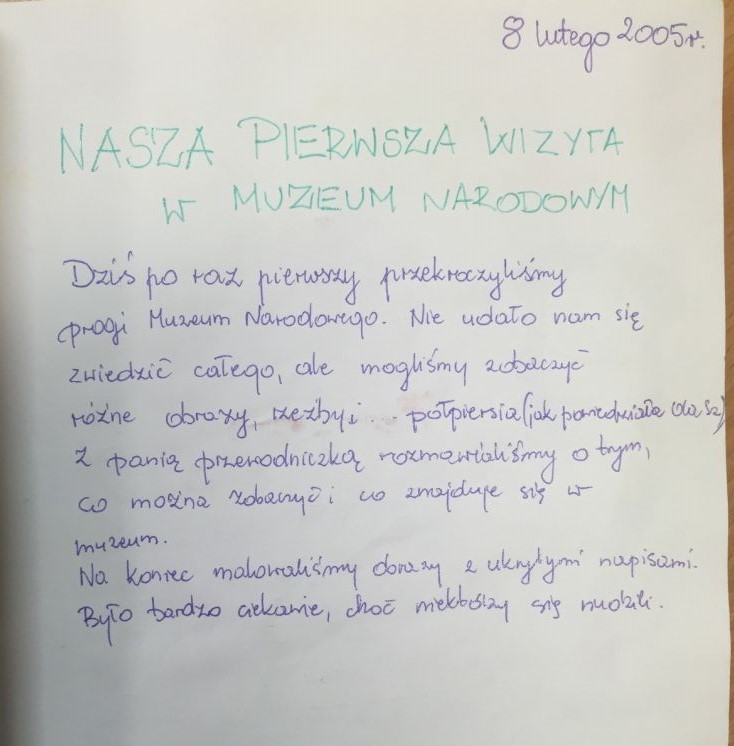 8 lutego 2005r.
NASZA PIERWSZA WIZYTA
W MUZEUM NARODOWYM
Dziś po raz pierwszy przekroczyliśmy
progi Muzeum Narodowego. Nie udało nam się
zwiedzić całego, ale mogliśmy zobaczyć
różne obrazy, rzeźby i popiersia (jak powiedziała Ola Sz)
Z panią przewodniczką rozmawialiśmy o tym,
co można zobaczyć i co znajduje się w
muzeum.
Na koniec malowaliśmy obrazy z ukrytymi napisami.
Było bardzo ciekawie, choć niektórzy się nudzili.